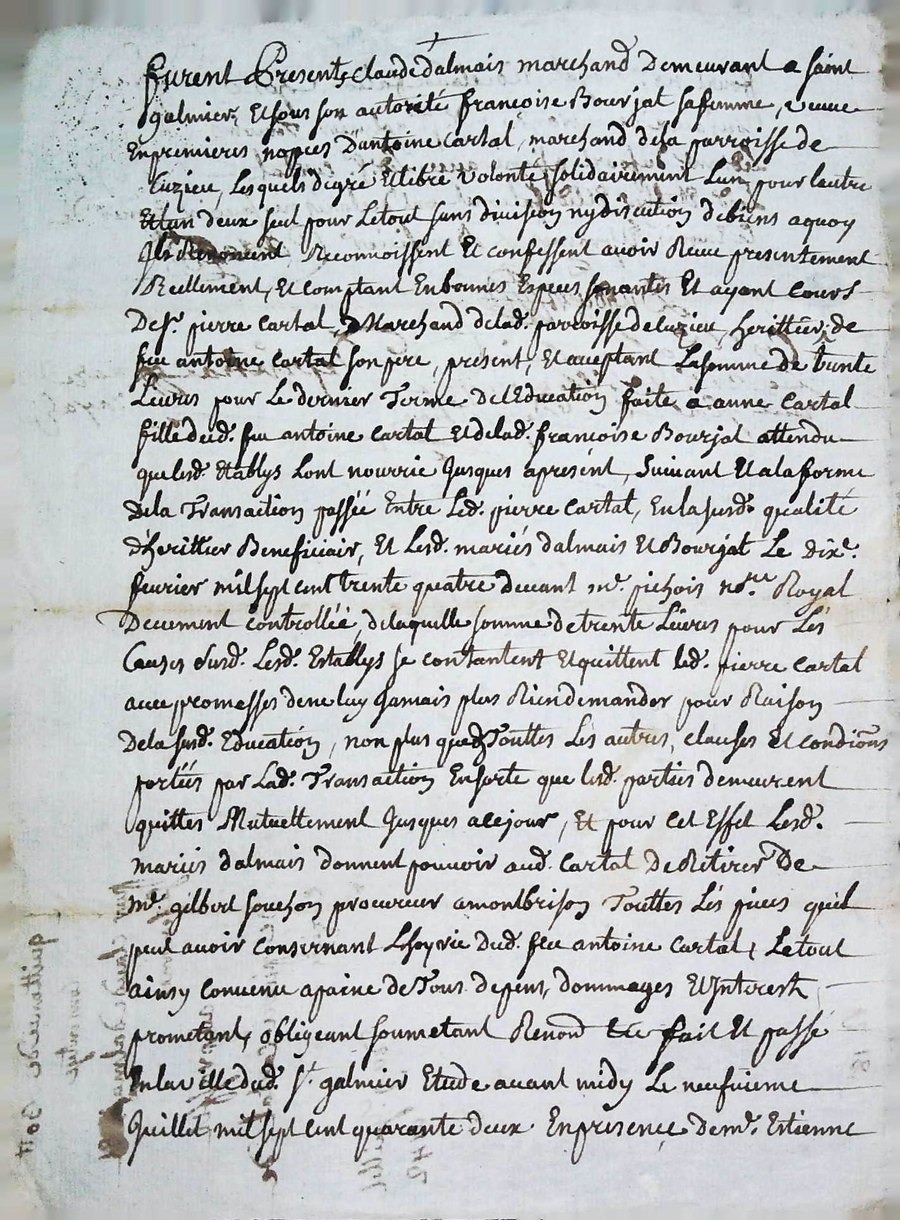 furent Presents Claude Dalmais marchand Demeurant a saint
galmier, Et sous son autorité francoise Bourjat sa femme, veuve
En premieres nopces D'antoine Cartal, marchand dela parroisse de
Luzieu, Lesquels de gré Et libre volonté, solidairement Lun, pour lautre
Et lun deux seul pour Le tout sans division ny discution de biens a quoy
Ils Renoncent Reconnoissent Et confessent avoir Receu presentement
Reellement, Et comptant En bonnes Especes sonantes Et ayant Cours
De sr. pierre Cartal, Marchand delad. parroisse de luzieu, herittier de
feu antoine Cartal son pere, present, Et acceptant La somme de trente
Livres pour Le dernier Terme de l'Education faite a anne Cartal
fille dud. feu antoine Cartal Et delad. francoise Bourjat attendu
que lesd. Etablys Lont nourrie Jusques apresent, Suivant Et a la forme
Dela Transaction passée Entre Led. pierre Cartal, En la susd. qualité
d'herittier Beneficiair, Et Lesd. mariés dalmais Et Bourjat Le dixe.
fevrier mil sept cent trente quatre devant me. pichois nore. Royal
Deuement controllée, de laquelle somme de trente Livres pour Les
Causes susd. Lesd. Establys se contantent Et quittent led. pierre Cartal
avec promesses de ne luy Jamais plus Rien demander pour Raison
Dela susd. Education, non plus que de Touttes Les autres, clauses et condions
portées par Lad. Transaction En sorte que lesd. parties demeurent
quittes Mutuellement Jusques a ce jour, Et pour cet Effet Lesd.
mariés dalmais donnent pouvoir aud. Cartal De Retirer De
me. gilbert souchon procureur a montbrison Touttes Les pieces quil
peut avoir consernant Lhoyrie dud. feu antoine Cartal, Le tout
ainsy convenu a paine de Tous depens, dommages Et Interests
prometant, obligeant soumetant Renond &c fait Et passé
En la ville dud. st. galmier Etude avant midy Le neufvieme
Juillet mil sept cent quarante deux En presence de me. Estienne